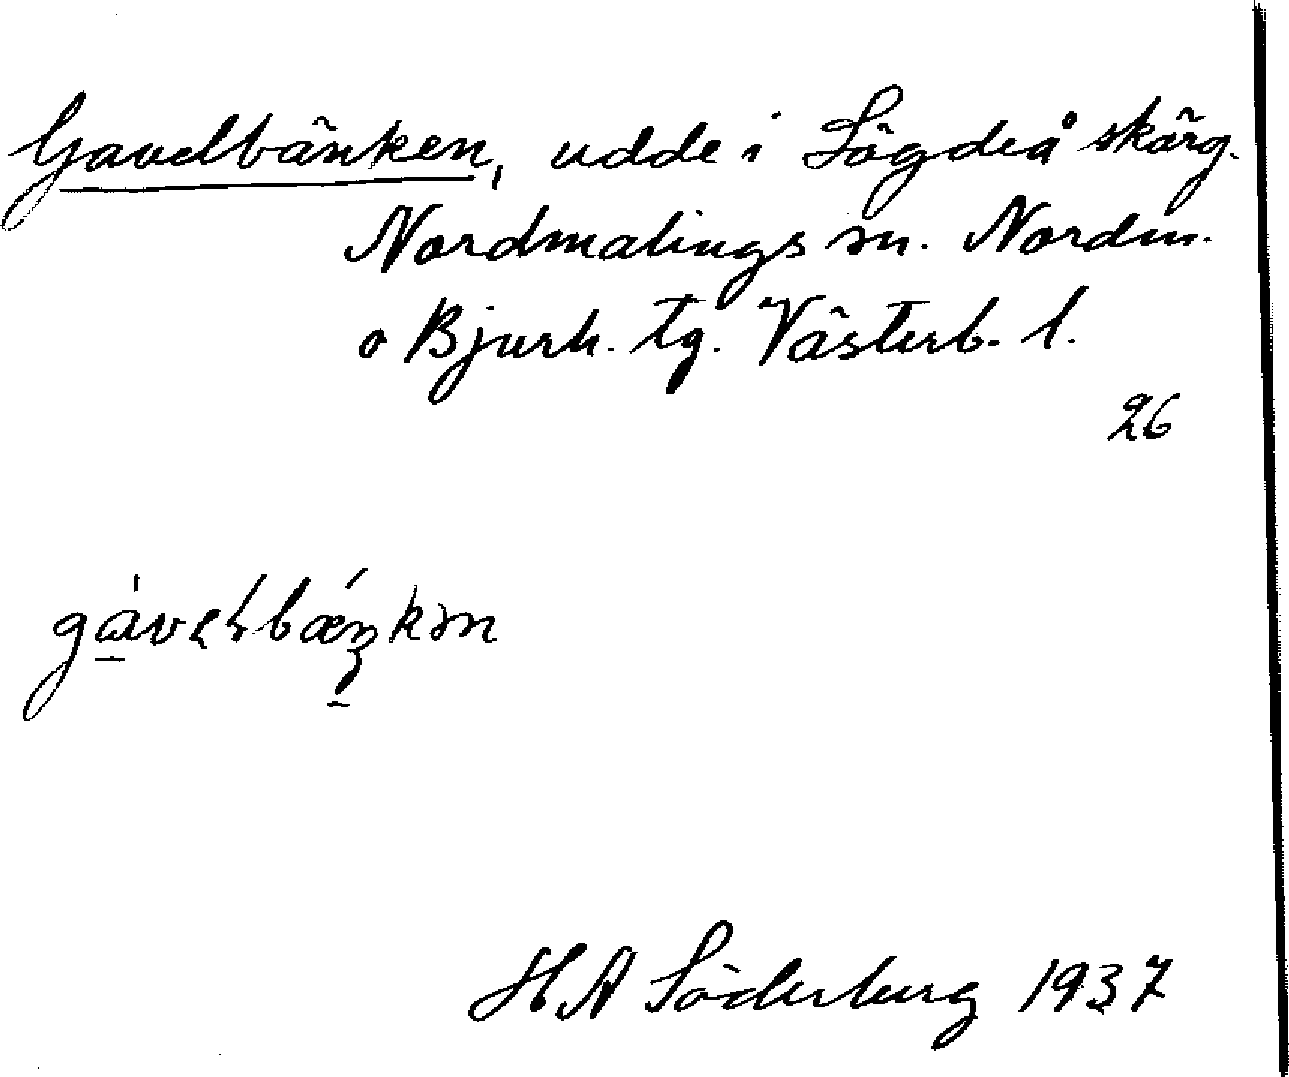 Gavelbänken, udde i Lögdeå skärg.
Nordmalings sn. Nordm.
o Bjurh. tg. Västerb. l.
26
H A Söderberg 1937